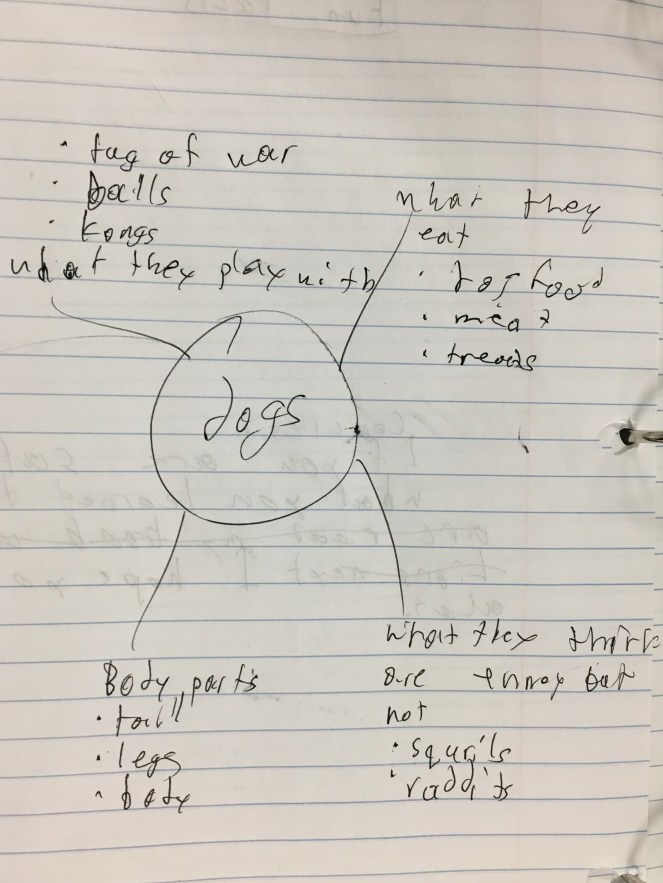 • tug of war
• balls
• kongs
what they play with
what they
eat
• dog food
• meat
• treats
dogs
Body parts
• tail
• legs
• body
what they think
are but
not
• squrils
• raddits